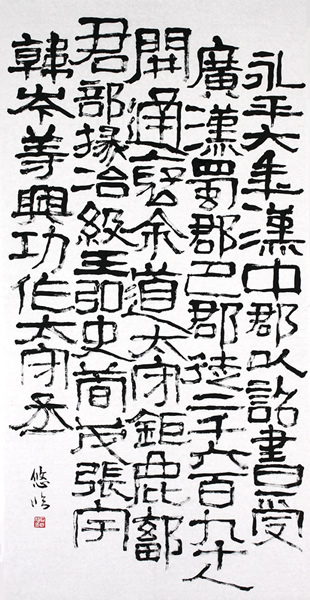 永平六年漢中郡以詔書受
廣漢蜀郡巴郡徒二千六百九十人
開通褒余道太守鉅鹿鄐
君部掾治級王弘史荀茂張宇
韓岑等興功作太守丞
悠临